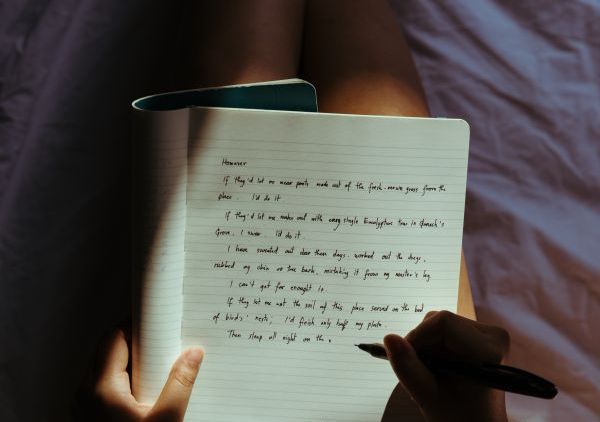 However
If they'd let me wear pants made out of the fresh-mown grass from the
place. I'd do it
If they'd let me make out with every single Eucalyptus tree in
Grove, I swear. I'd do it.
I have sweated out dew these days. worked out the dregs,
rubbed my chin on the bark, mistaking it from my master's leg
I can't get far enought to
If they let me eat the soil of this place served on the bed
of birds' nests, I'd finish only half my plate.
Then sleep all night on the